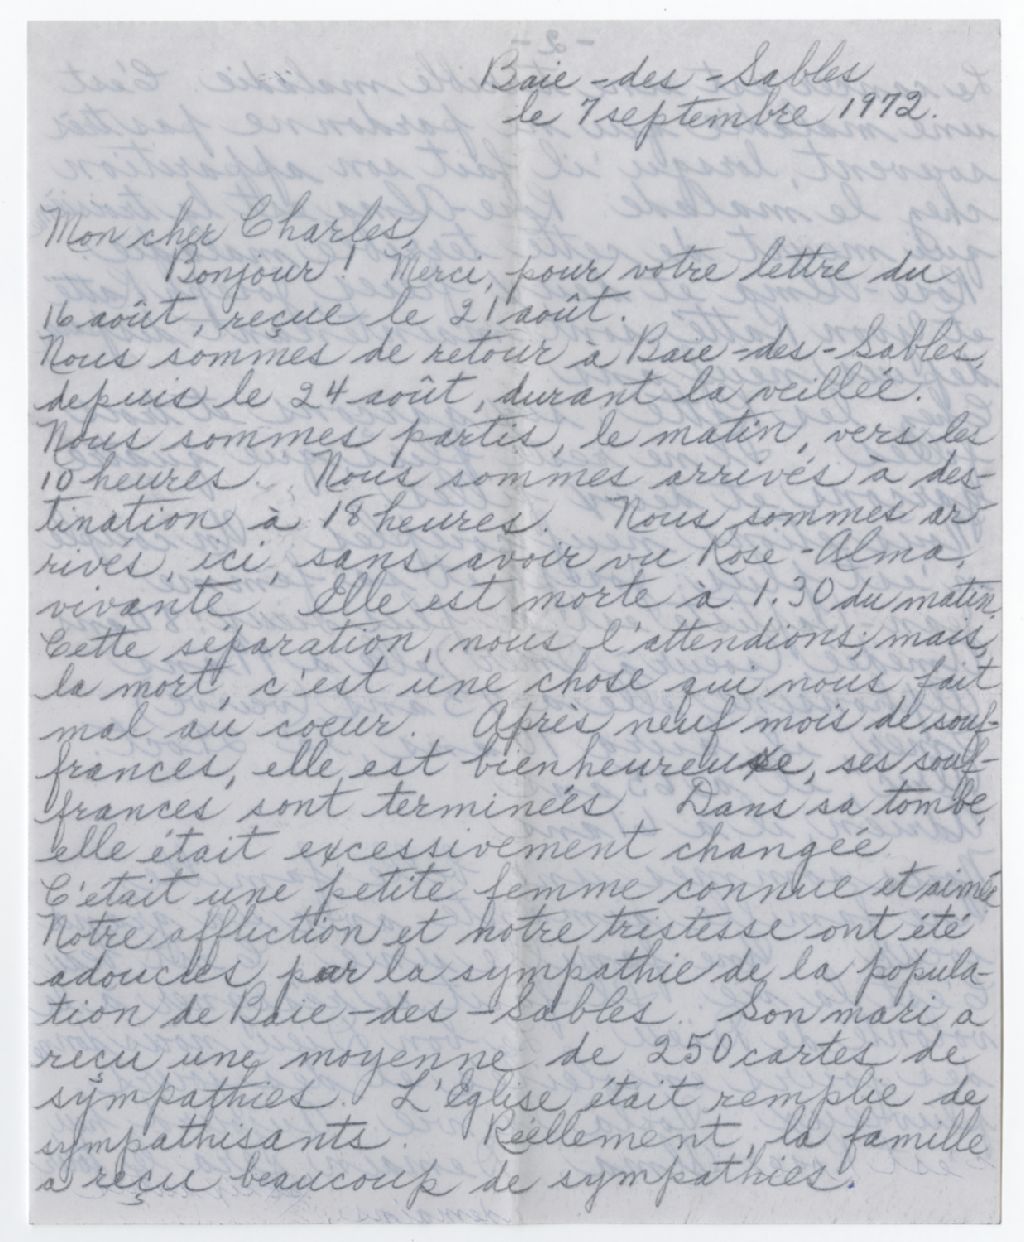 Baie-des-Sables
le 7 septembre 1972.
Mon cher Charles,
Bonjour! Merci, pour votre lettre du
16 août, reçue le 21 août.
Nous sommes de retour à Baie-des-Sables,
depuis le 24 août, durant la veillée.
Nous sommes partis, le matin, vers les
10 heures. Nous sommes arrivés à des-
tination à 18 heures. Nous sommes ar-
rivés, ici, sans avoir vu Rose-Alma,
vivante. Elle est morte à 1.30 du matin
Cette séparation, nous l'attendions, mais,
la mort, c'est une chose qui nous fait
mal au coeur. Après neuf mois de souf-
frances, elle est bienheureuse, ses souf-
frances sont terminées. Dans sa tombe,
elle était excessivement changée
C'était une petite femme connue et aimée
Notre affliction et notre tristesse ont été
adoucies par la sympathie de la popula-
tion de Baie-des-Sables. Son mari, a
reçu une moyenne de 250 cartes de
sympathies. L'Église était remplie de
sympathisants. Réellement, la famille
a reçu beaucoup de sympathies.